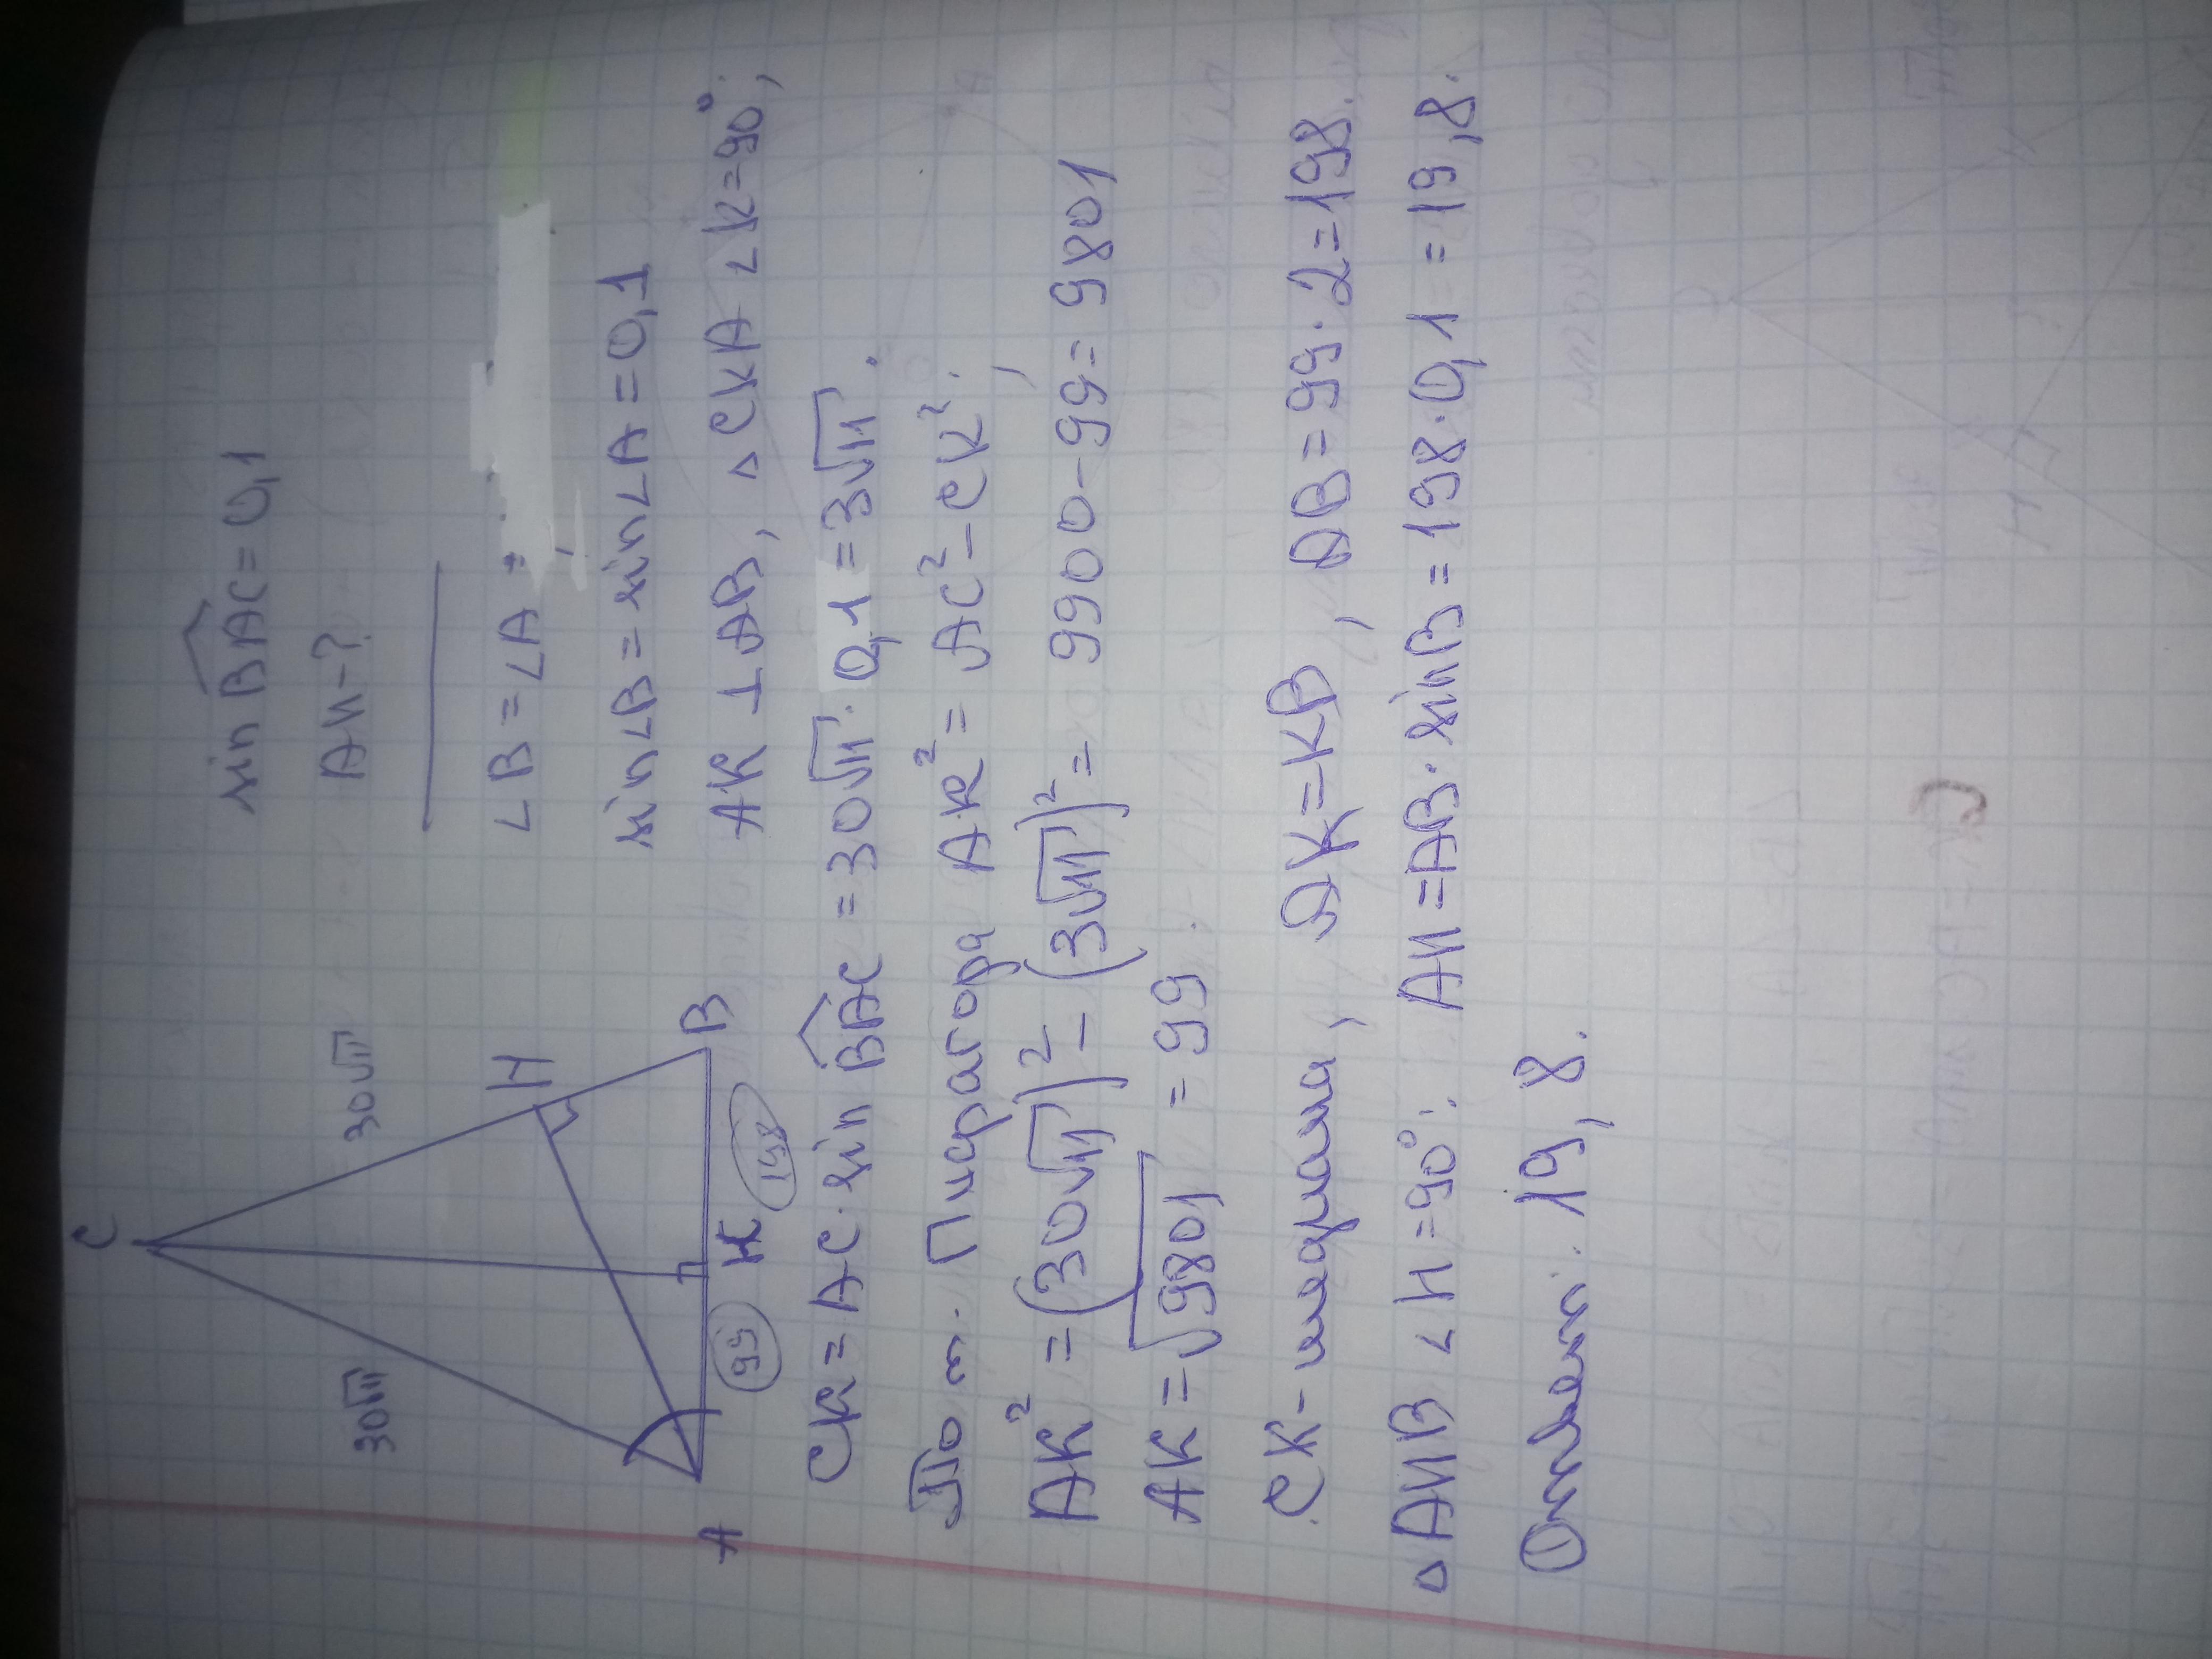 C
30√11
30√11
H
A
99
K
198
B
sin BAC = 0,1
AH - ?
∠B = ∠A;
sin∠B = sin∠A = 0,1
AK ⊥ AB, △CKA ∠K = 90°;
CK = AC · sin BAC = 30√11 · 0,1 = 3√11.
По т. Пифагора AK² = AC² - CK²;
AK² = (30√11)² - (3√11)² = 9900 - 99 = 9801
AK = √9801 = 99.
CK - медиана, AK = KB, AB = 99 · 2 = 198.
△AHB ∠H = 90°: AH = AB · sinB = 198 · 0,1 = 19,8.
Ответ: 19,8.